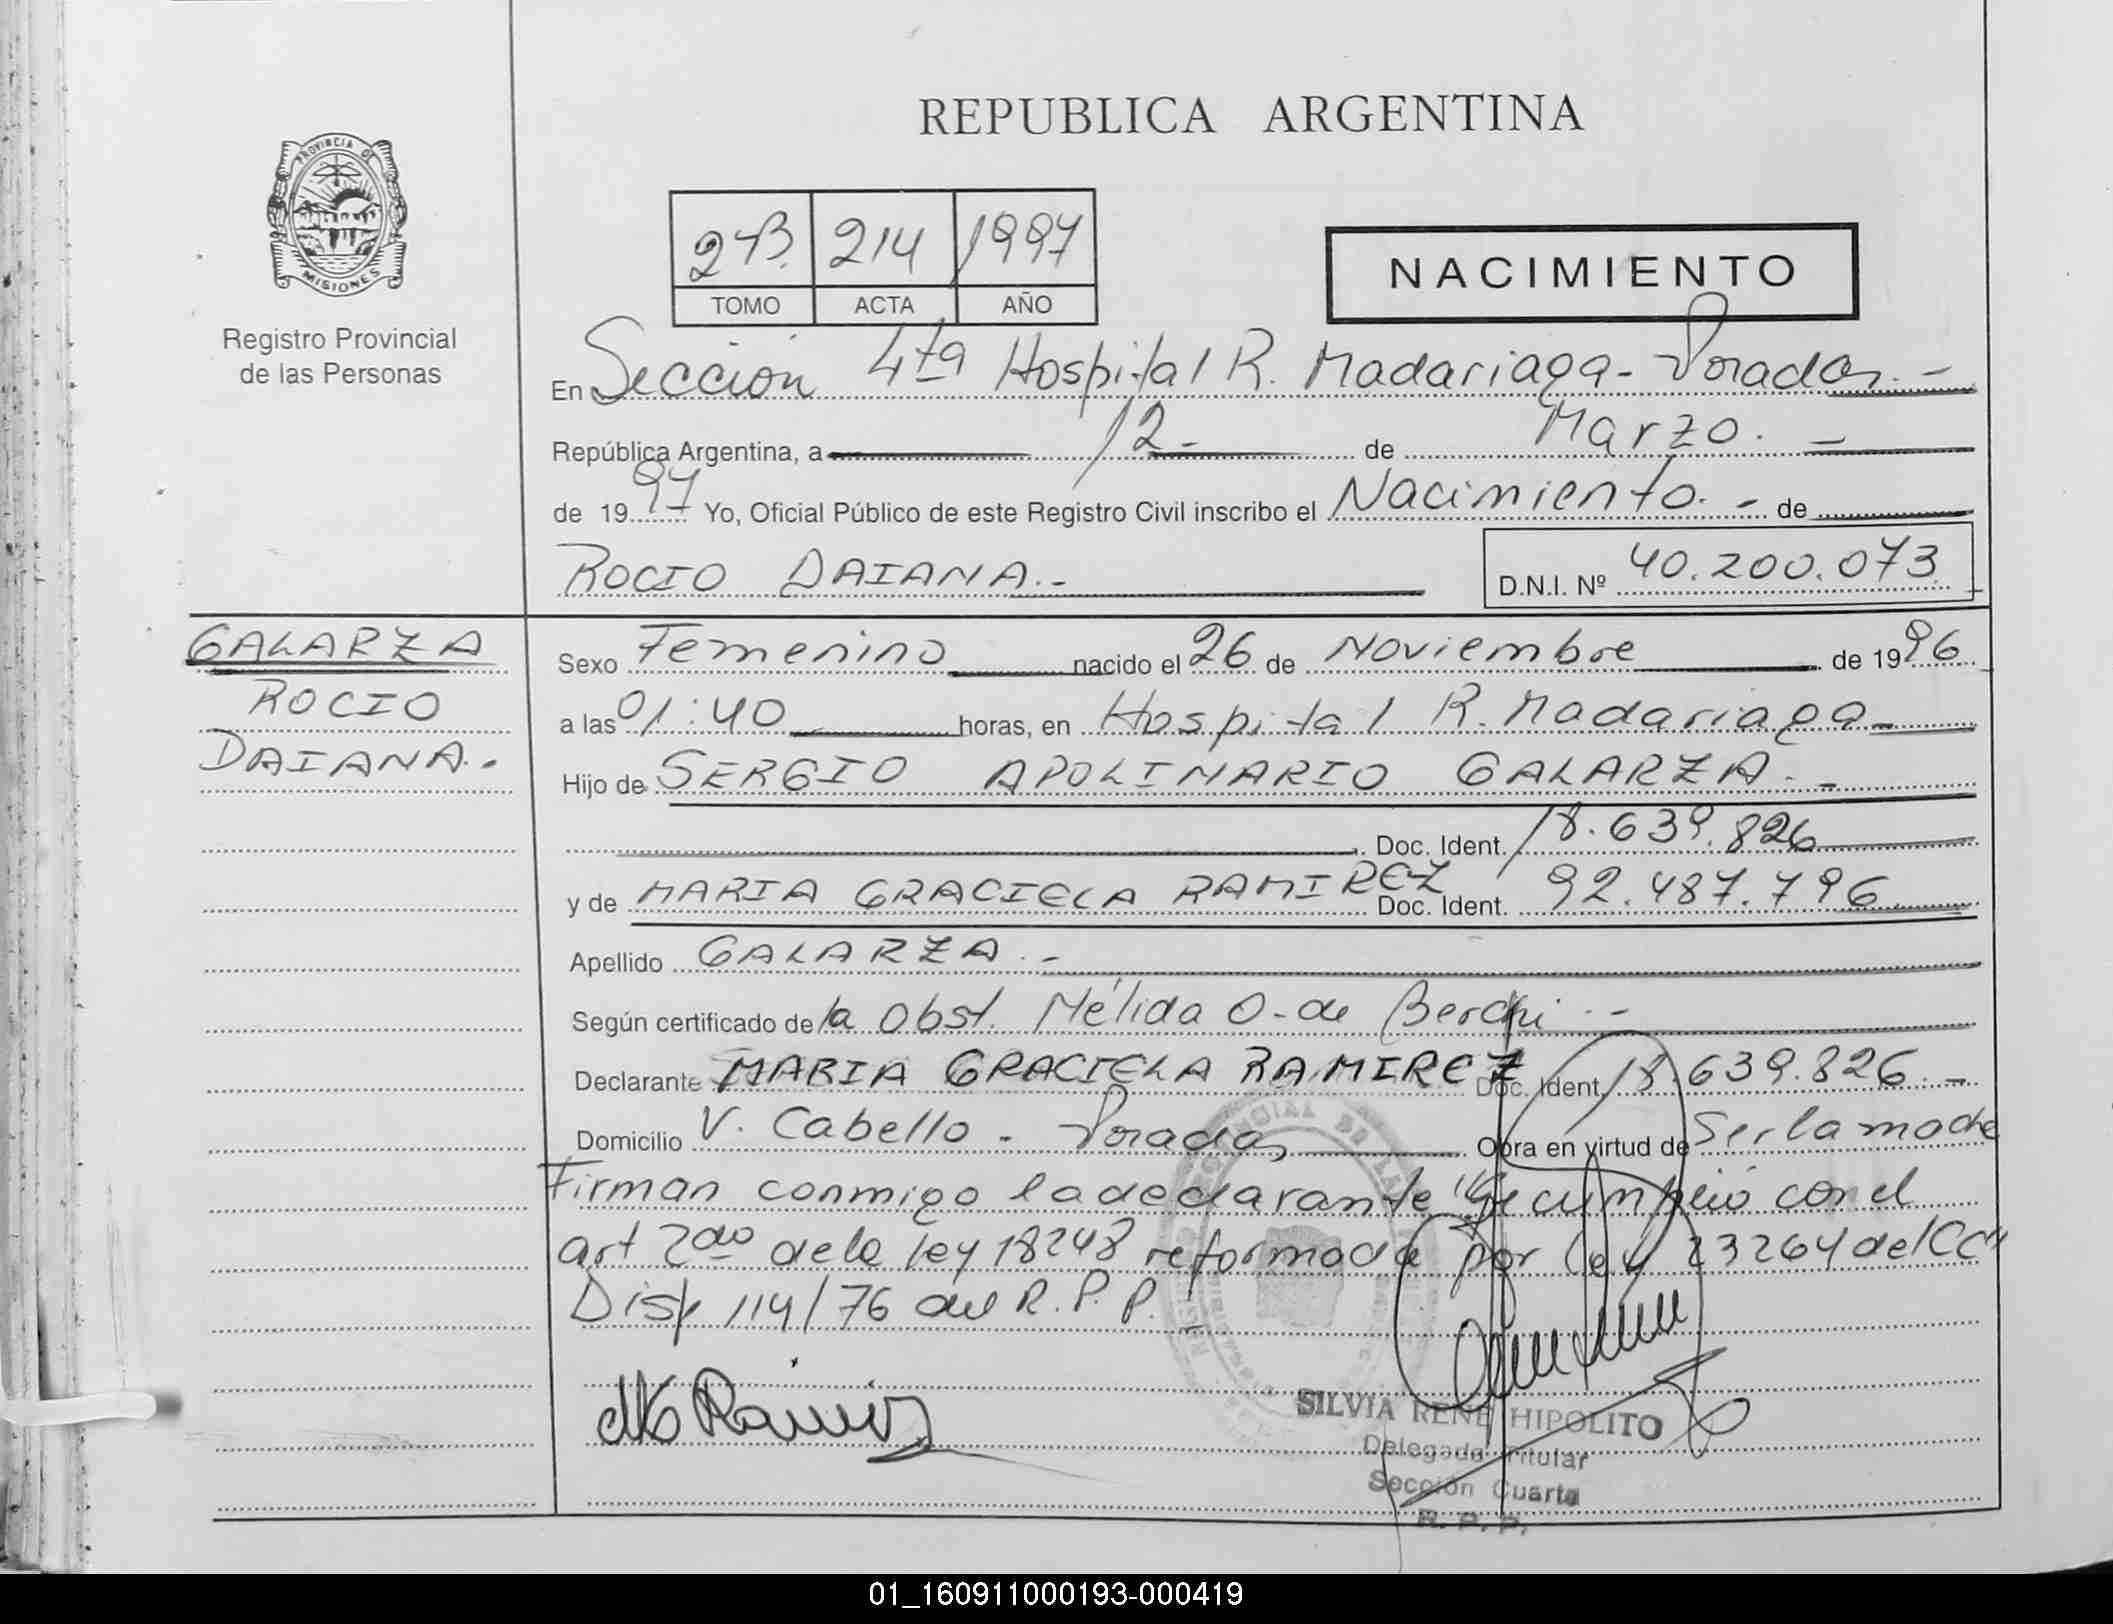 REPUBLICA ARGENTINA
PROVINCIA DE
MISIONES
Registro Provincial
de las Personas
214 1997
TOMO ACTA AÑO
NACIMIENTO
En Sección 4ta Hospital R. Madariaga - Posadas. -
República Argentina, a 12 - de Marzo. -
de 1997 Yo, Oficial Público de este Registro Civil inscribo el Nacimiento. - de
ROCIO DAIANA. -
D.N.I. Nº 40.200.073
GALARZA
ROCIO
DAIANA. -
Sexo Femenino nacido el 26 de Noviembre de 1996
a las 01:40 horas, en Hospital R. Madariaga -
Hijo de SERGIO APOLINARIO GALARZA. -
Doc. Ident. 18.639.826
y de MARIA GRACIELA RAMIREZ Doc. Ident. 92.487.796
Apellido GALARZA. -
Según certificado de la Obst. Nélida O. de -
Declarante MARIA GRACIELA RAMIREZ Doc. Ident. 18.639.826. -
Domicilio V. Cabello - Posadas Obra en virtud de Ser la madre
Firman conmigo la declarante "Se cumplió con el
art 2do de la ley 18248 reformada por ley 23264 del CC"
Disp 114/76 del R.P.P.
MG Ramirez
SILVIA RENE HIPOLITO
Delegada Titular
Sección Cuarta
R. P. P.
01_160911000193-000419